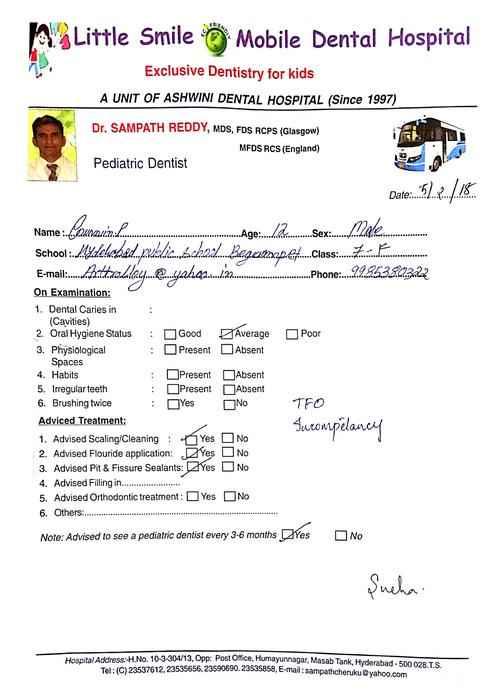 Little Smile Mobile Dental Hospital
Exclusive Dentistry for kids
A UNIT OF ASHWINI DENTAL HOSPITAL (Since 1997)
Dr. SAMPATH REDDY, MDS, FDS RCPS (Glasgow)
MFDS RCS (England)
Pediatric Dentist
Date: 5/2/18
Name: P Age: 12 Sex: Male
School: Hyderabad public school Begumpet Class: 7-F
E-mail: @ yahoo.in Phone: 9985380322
On Examination:
1. Dental Caries in :
(Cavities)
2. Oral Hygiene Status : Good Average Poor
3. Physiological : Present Absent
Spaces
4. Habits : Present Absent
5. Irregular teeth : Present Absent
6. Brushing twice : Yes No
TFO
Incompetancy
Adviced Treatment:
1. Advised Scaling/Cleaning : Yes No
2. Advised Flouride application: Yes No
3. Advised Pit & Fissure Sealants: Yes No
4. Advised Filling in
5. Advised Orthodontic treatment : Yes No
6. Others:
Note: Advised to see a pediatric dentist every 3-6 months Yes No
Sneha.
Hospital Address:-H.No. 10-3-304/13, Opp: Post Office, Humayunnagar, Masab Tank, Hyderabad - 500 028.T.S.
Tel : (C) 23537612, 23535656, 23590690, 23535858, E-mail : sampathcheruku@yahoo.com